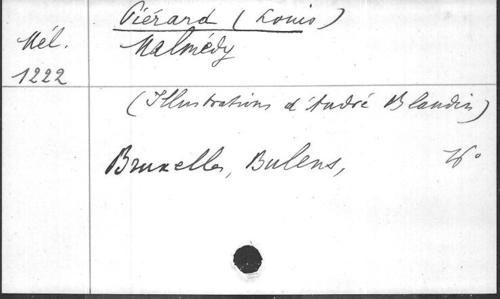 Piérard (Louis)
Mél. Malmédy
1222
(Illustrations d'André Blandin)
Bruxelles, Bulens,